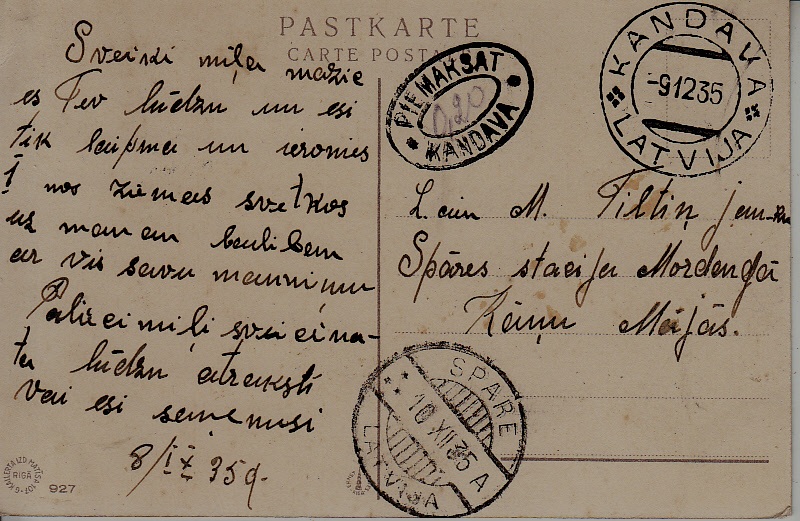 PASTKARTE
CARTE POSTALE
Sveiki miļa mazie
es Tev lūdzu un esi
tik laipma un ieronies
I nos ziemas svetkos
uz manam
ar vis savu
Paliec miļi sveicina-
ta lūdzu atraksti
vai esi saņemusi
8/IX 35g.
PIEMAKSAT
0,20
KANDAVA
KANDAVA
-9 12 35
LATVIJA
L. cien M. Tiltiņ jaun-kn
Spāres stacija Mordengā
Kāņu Mājās.
SPARE
10 XII 35 A
LATVIJA
RIGĀ
927